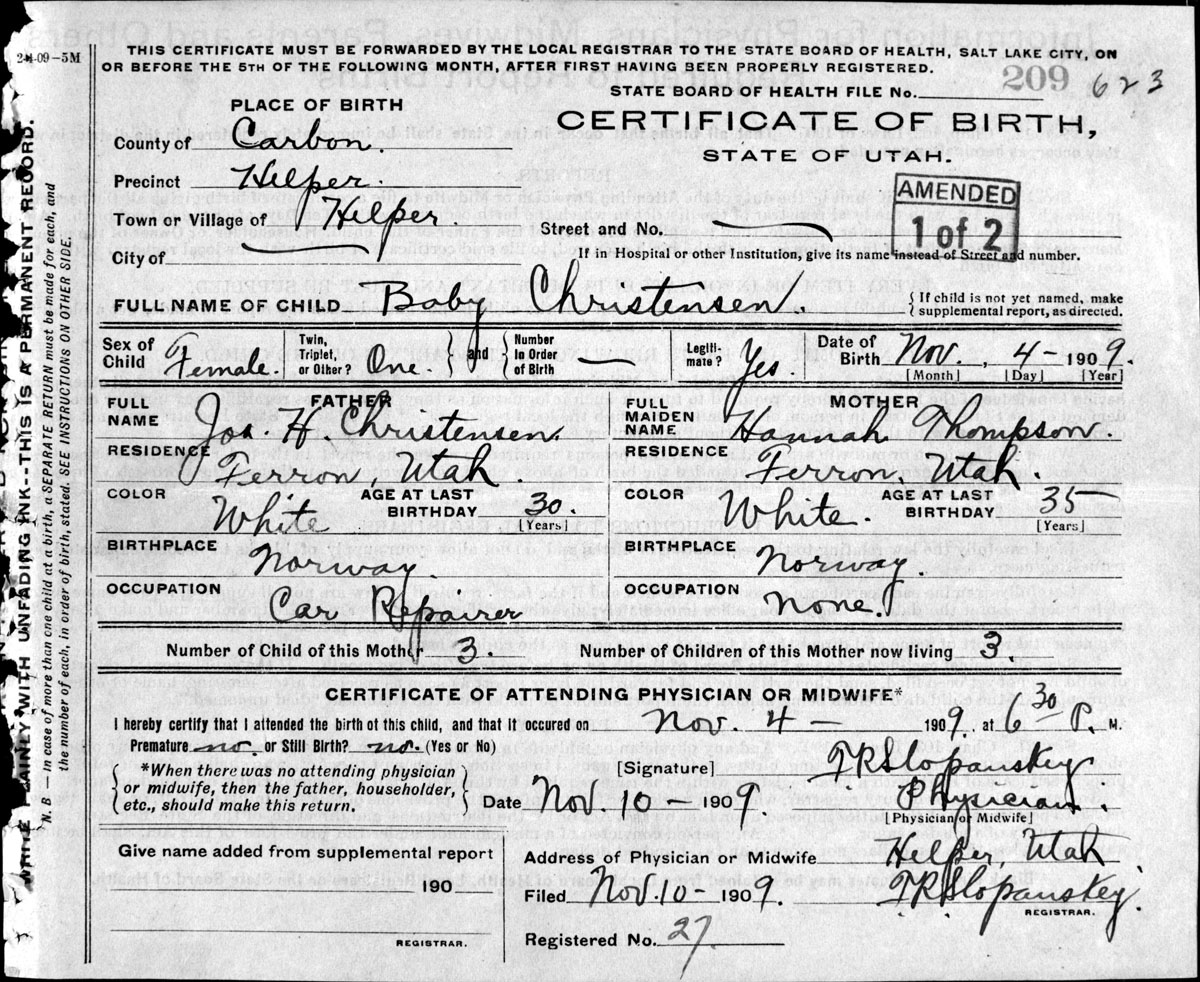 2-1-09—5M
THIS CERTIFICATE MUST BE FORWARDED BY THE LOCAL REGISTRAR TO THE STATE BOARD OF HEALTH, SALT LAKE CITY, ON
OR BEFORE THE 5TH OF THE FOLLOWING MONTH, AFTER FIRST HAVING BEEN PROPERLY REGISTERED.
209 623
STATE BOARD OF HEALTH FILE No.
PLACE OF BIRTH
CERTIFICATE OF BIRTH,
STATE OF UTAH.
County of Carbon.
Precinct Helper.
AMENDED
1 of 2
Town or Village of Helper
Street and No. —
City of
If in Hospital or other Institution, give its name instead of Street and number.
FULL NAME OF CHILD Baby Christensen.
{ If child is not yet named, make
supplemental report, as directed.
Sex of Child Female. Twin, Triplet, or Other? One. } and { Number in Order of Birth — Legiti- mate? Yes. Date of Birth Nov. 4 – 1909.
[Month] [Day] [Year]
FATHER MOTHER
FULL NAME Jos. H. Christensen. FULL MAIDEN NAME Hannah Thompson.
RESIDENCE Ferron, Utah. RESIDENCE Ferron, Utah.
COLOR White AGE AT LAST BIRTHDAY 30. [Years] COLOR White. AGE AT LAST BIRTHDAY 35 [Years]
BIRTHPLACE Norway. BIRTHPLACE Norway.
OCCUPATION Car Repairer OCCUPATION none.
Number of Child of this Mother 3. Number of Children of this Mother now living 3.
CERTIFICATE OF ATTENDING PHYSICIAN OR MIDWIFE*
I hereby certify that I attended the birth of this child, and that it occured on Nov. 4 — 1909. at 6 30 P. M.
Premature no. or Still Birth? no. (Yes or No)
{ *When there was no attending physician
or midwife, then the father, householder,
etc., should make this return. }
[Signature] T R Slopanskey
Date Nov. 10 – 1909 Physician.
[Physician or Midwife]
Give name added from supplemental report
190
REGISTRAR.
Address of Physician or Midwife Helper, Utah
Filed Nov. 10 – 1909. T R Slopanskey.
REGISTRAR.
Registered No. 27.
WRITE PLAINLY WITH UNFADING INK--THIS IS A PERMANENT RECORD.
N. B. — in case of more than one child at a birth, a SEPARATE RETURN must be made for each, and
the number of each, in order of birth, stated. SEE INSTRUCTIONS ON OTHER SIDE.